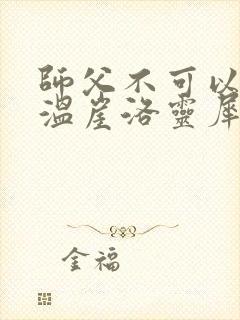 師父不可以
溫崖洛靈犀
金福